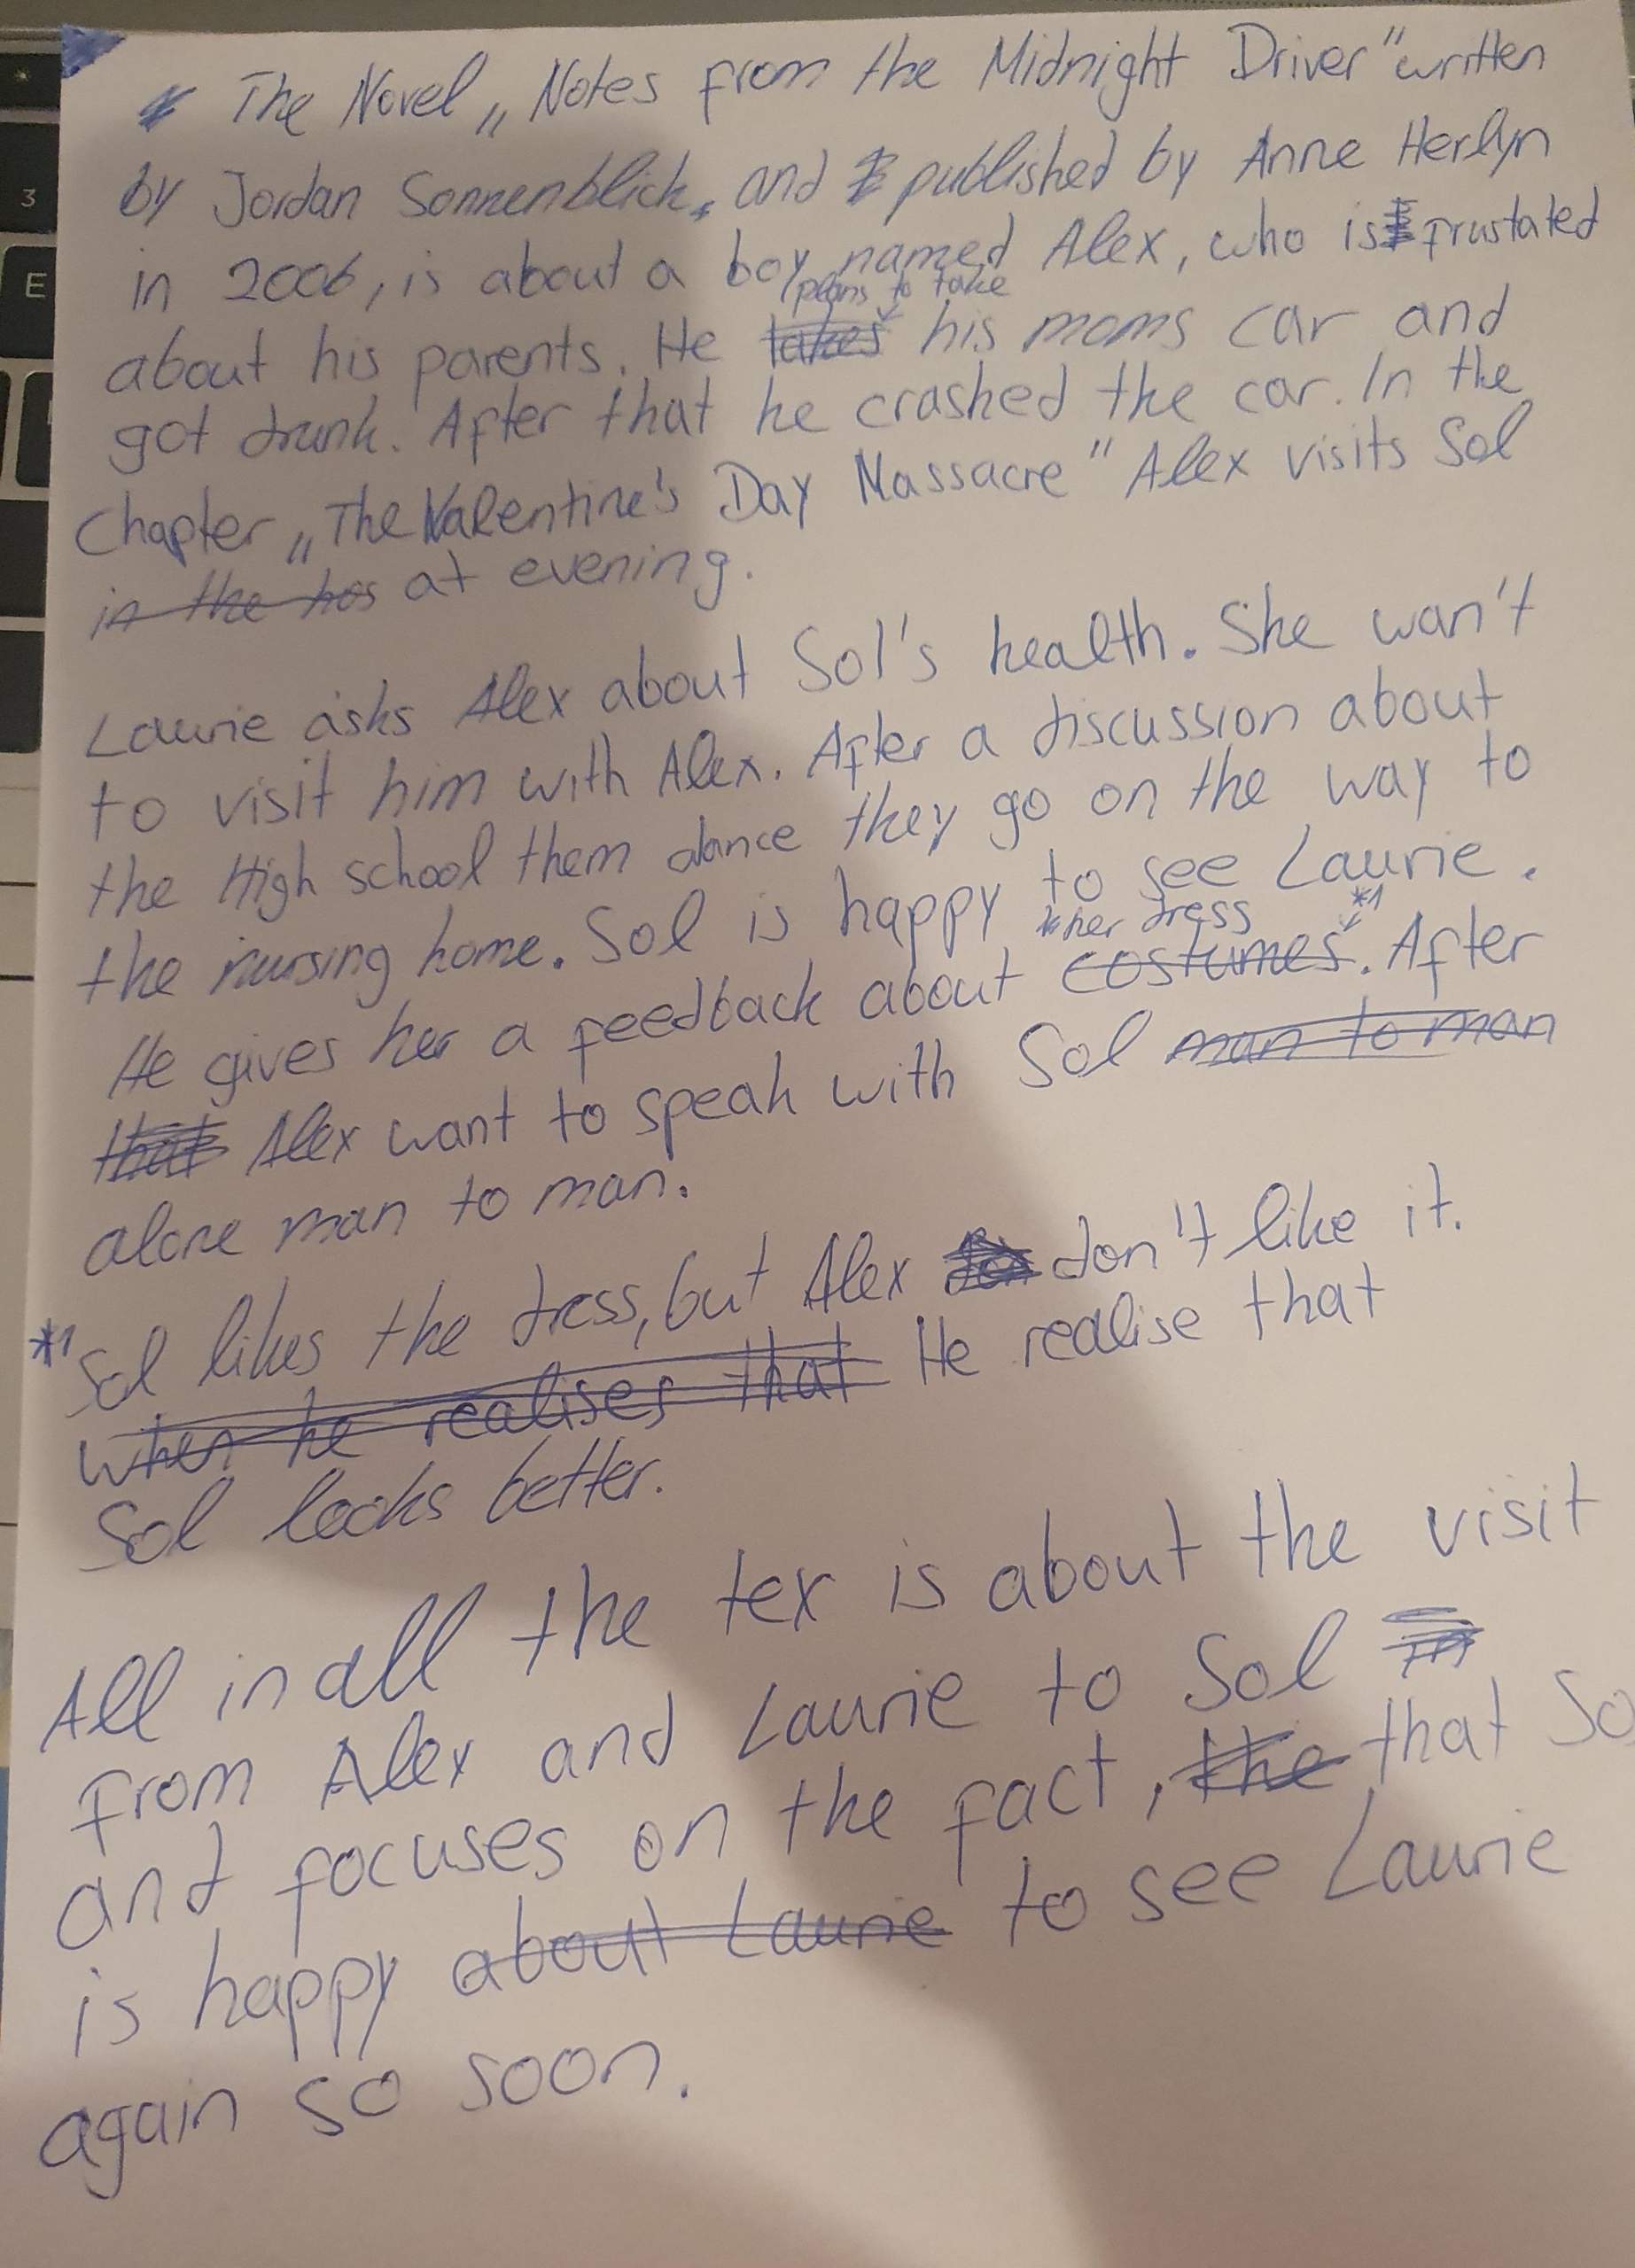 The Novel „Notes from the Midnight Driver" written
by Jordan Sonnenblick, and published by Anne Herlyn
in 2006, is about a boy named Alex, who is frustated
plans to take
about his parents. He takes his moms car and
got drunk. After that he crashed the car. In the
Chapter „The Valentine's Day Massacre" Alex visits Sol
in the hos at evening.
Laurie asks Alex about Sol's health. She wan't
to visit him with Alex. After a discussion about
the High school them dance they go on the way to
the nursing home. Sol is happy to see Laurie.
her dress *1
He gives her a feedback about costumes. After
that Alex want to speak with Sol man to man
alone man to man.
*1 Sol likes the dress, but Alex don't like it.
when he realises that He realise that
Sol looks better.
All in all the tex is about the visit
from Alex and Laurie to Sol
and focuses on the fact, the that So
is happy about Laurie to see Laurie
again so soon.
3
E